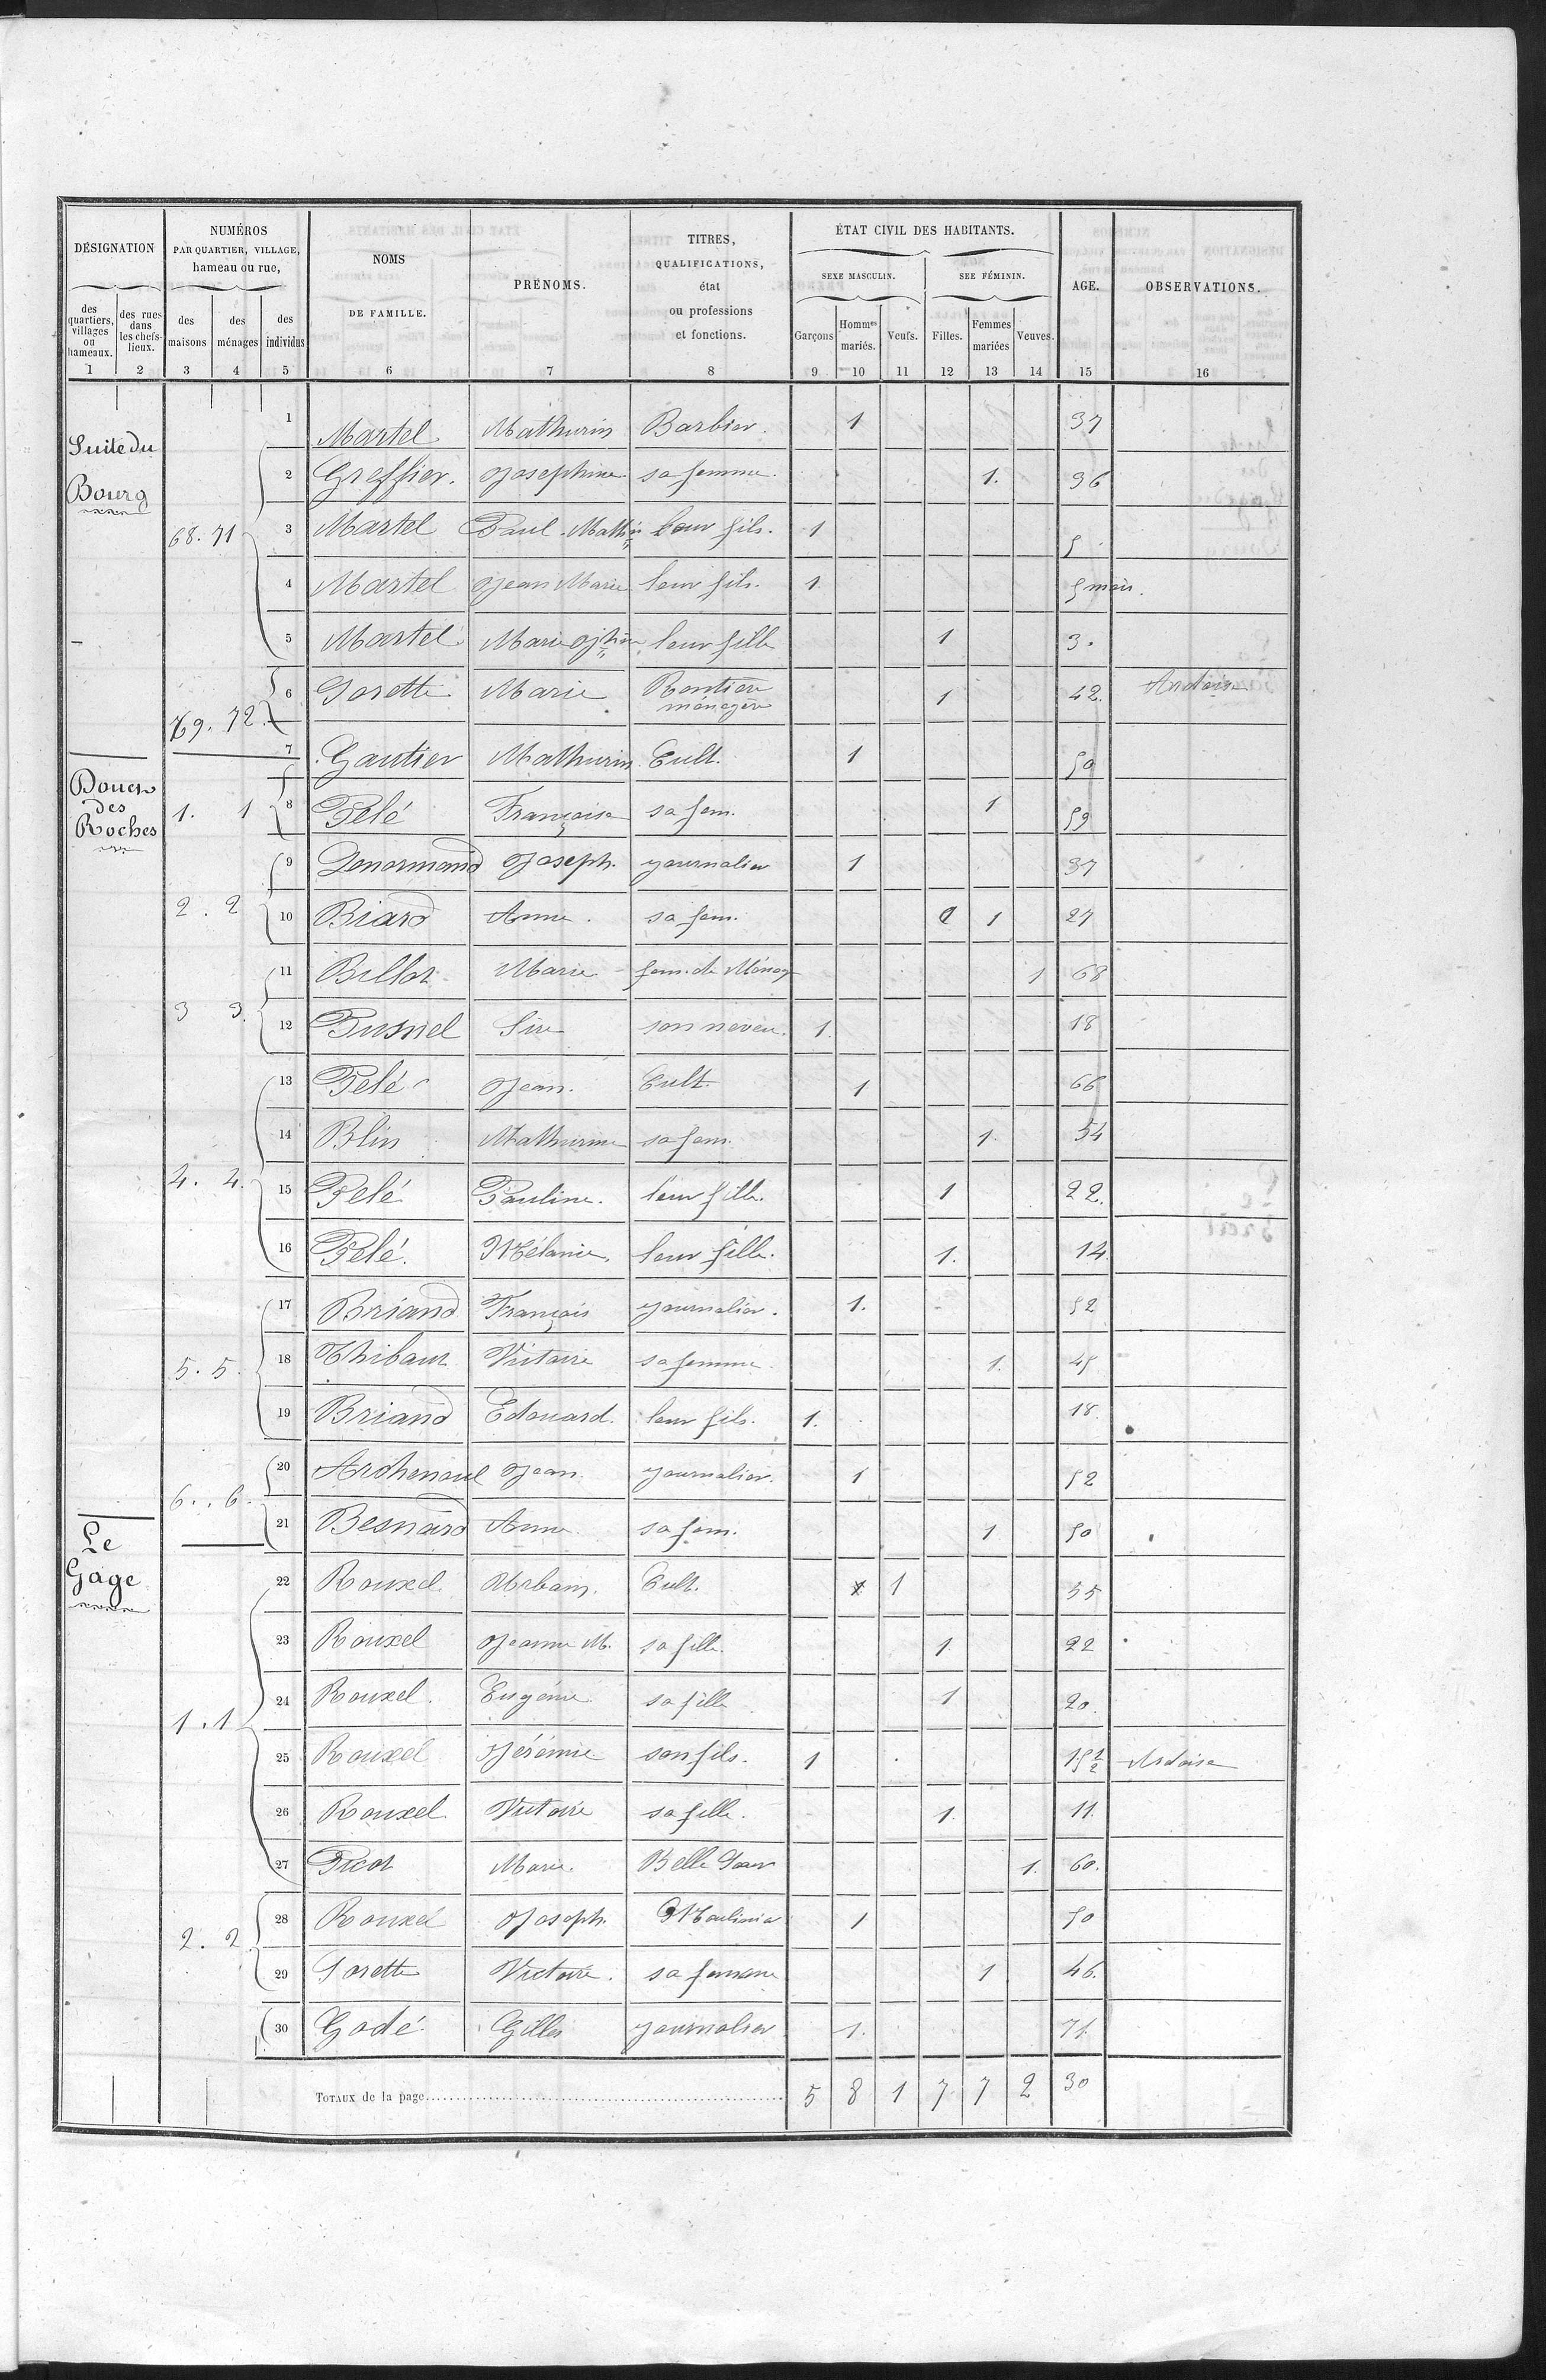 DÉSIGNATION
NUMÉROS
PAR QUARTIER, VILLAGE,
hameau ou rue,
NOMS
DE FAMILLE.
PRÉNOMS.
TITRES,
QUALIFICATIONS,
état
ou professions
et fonctions.
ÉTAT CIVIL DES HABITANTS.
SEXE MASCULIN.
SEE FÉMININ.
AGE.
OBSERVATIONS.
des quartiers, villages ou hameaux.
des rues dans les chefs-lieux.
des maisons
des ménages
des individus
Garçons
Hommes mariés.
Veufs.
Filles.
Femmes mariées
Veuves.
1 2 3 4 5 6 7 8 9 10 11 12 13 14 15 16
Suite du Bourg
1 Martel Mathurin Barbier. 1 37
2 Greffier. Josephine sa femme. 1. 36
68. 71 3 Martel Paul. Mathin leur fils. 1 5
4 Martel Jean Marie leur fils. 1. 5 mois.
5 Martel Marie Jphine leur fille 1 3.
69. 72. 6 Gorette Marie Rentière ménagère 1 42. Ardoise
7 Gautier Mathurin Cult. 1 59
Douet des Roches
1. 1 8 Pelé Françoise sa fem. 1 59
9 Lenormand Joseph. journalier 1 37
2. 2 10 Biard Anne. sa fem. 1 27
11 Billot Marie fem. de Ménag 1 68
3 3. 12 Pusnel son neveu. 1. 18
13 Pelé Jean. Cult. 1 66
14 Blin Mathurine sa fem. 1. 54
4. 4. 15 Pelé Pauline. leur fille. 1 22.
16 Pelé. Mélanie. leur fille. 1. 14.
17 Briand François journalier. 1. 52
5. 5. 18 Thibaut Victoire sa femme. 1. 45
19 Briand Edouard. leur fils. 1. 18.
20 Archenoul Jean journalier. 1 52
6. 6. 21 Besnard Anne sa fem. 1 50
Le Gage
22 Rouxel Urbain. Cult. 1 1 55
23 Rouxel Jeanne M. sa fille. 1. 22
24 Rouxel. Eugénie sa fille 1 20.
1. 1 25 Rouxel Jérémie son fils. 1 15 1/2 Ardoise
26 Rouxel Victoire sa fille. 1. 11.
27 Picot Marie. Belle Soeur 1. 60.
28 Rouxel Joseph. Moulinier 1 50
2. 2. 29 Gorette Victoire. sa femme 1 46.
30 Godé. Gilles journalier 1. 71.
TOTAUX de la page 5 8 1 7 7 2 30